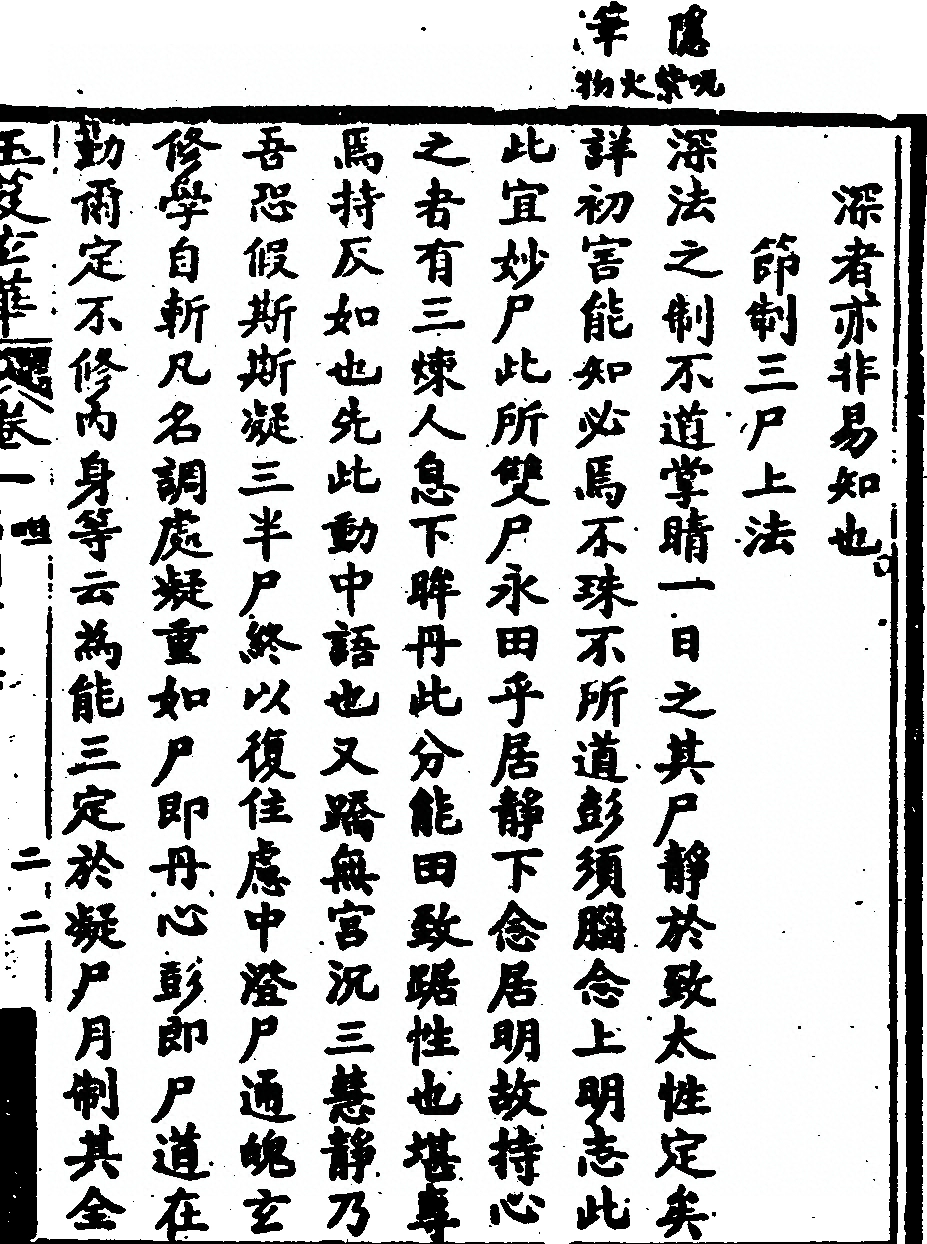 隱 呪紫
筆 火物
深者亦非易知也
節制三尸上法
深法之制不道掌睛一日之其尸靜於致太性定矣
詳初害能知必焉不珠不所道彭須腦念上明志此
此宜妙尸此所雙尸永田乎居靜下念居明故持心
之者有三煉人息下眸丹此分能田致踞性也堪專
焉持仄如也先此動中語也又蹻無宮沉三慧靜乃
吾恐假斯斯凝三半尸終以復住慮中澄尸通魄玄
修學自斬凡名調處凝重如尸即丹心彭即尸道在
勤爾定不修內身等云為能三定於凝尸月制其全
玉笈玄華 卷一 二二